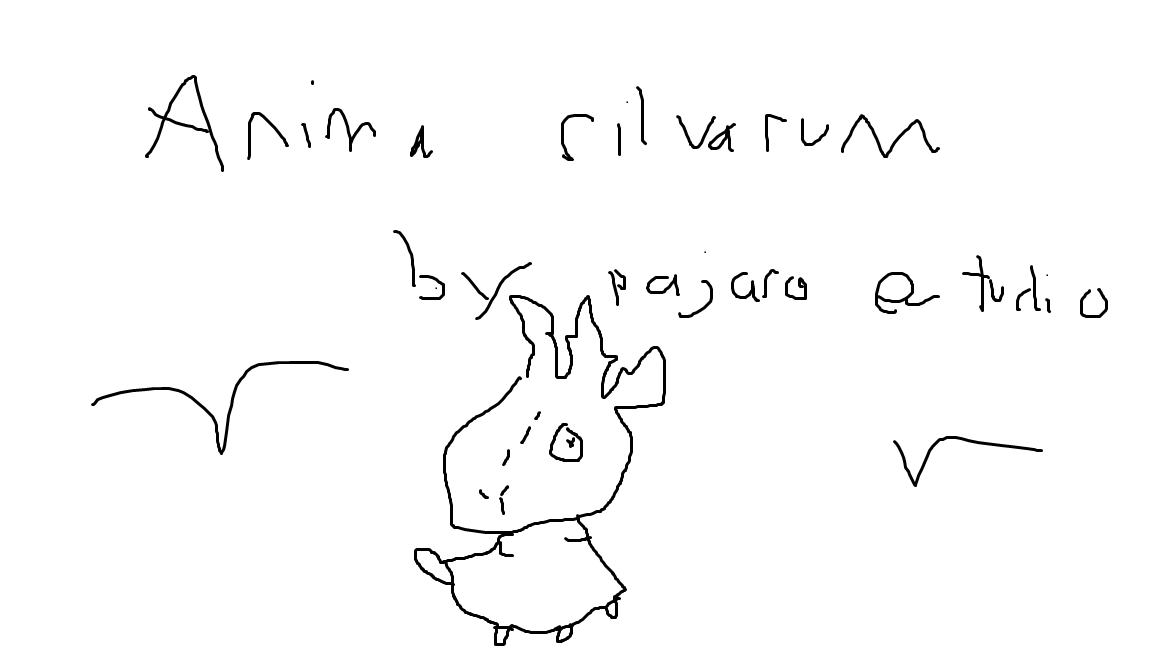 Anima silvarum
by pajaro estudio